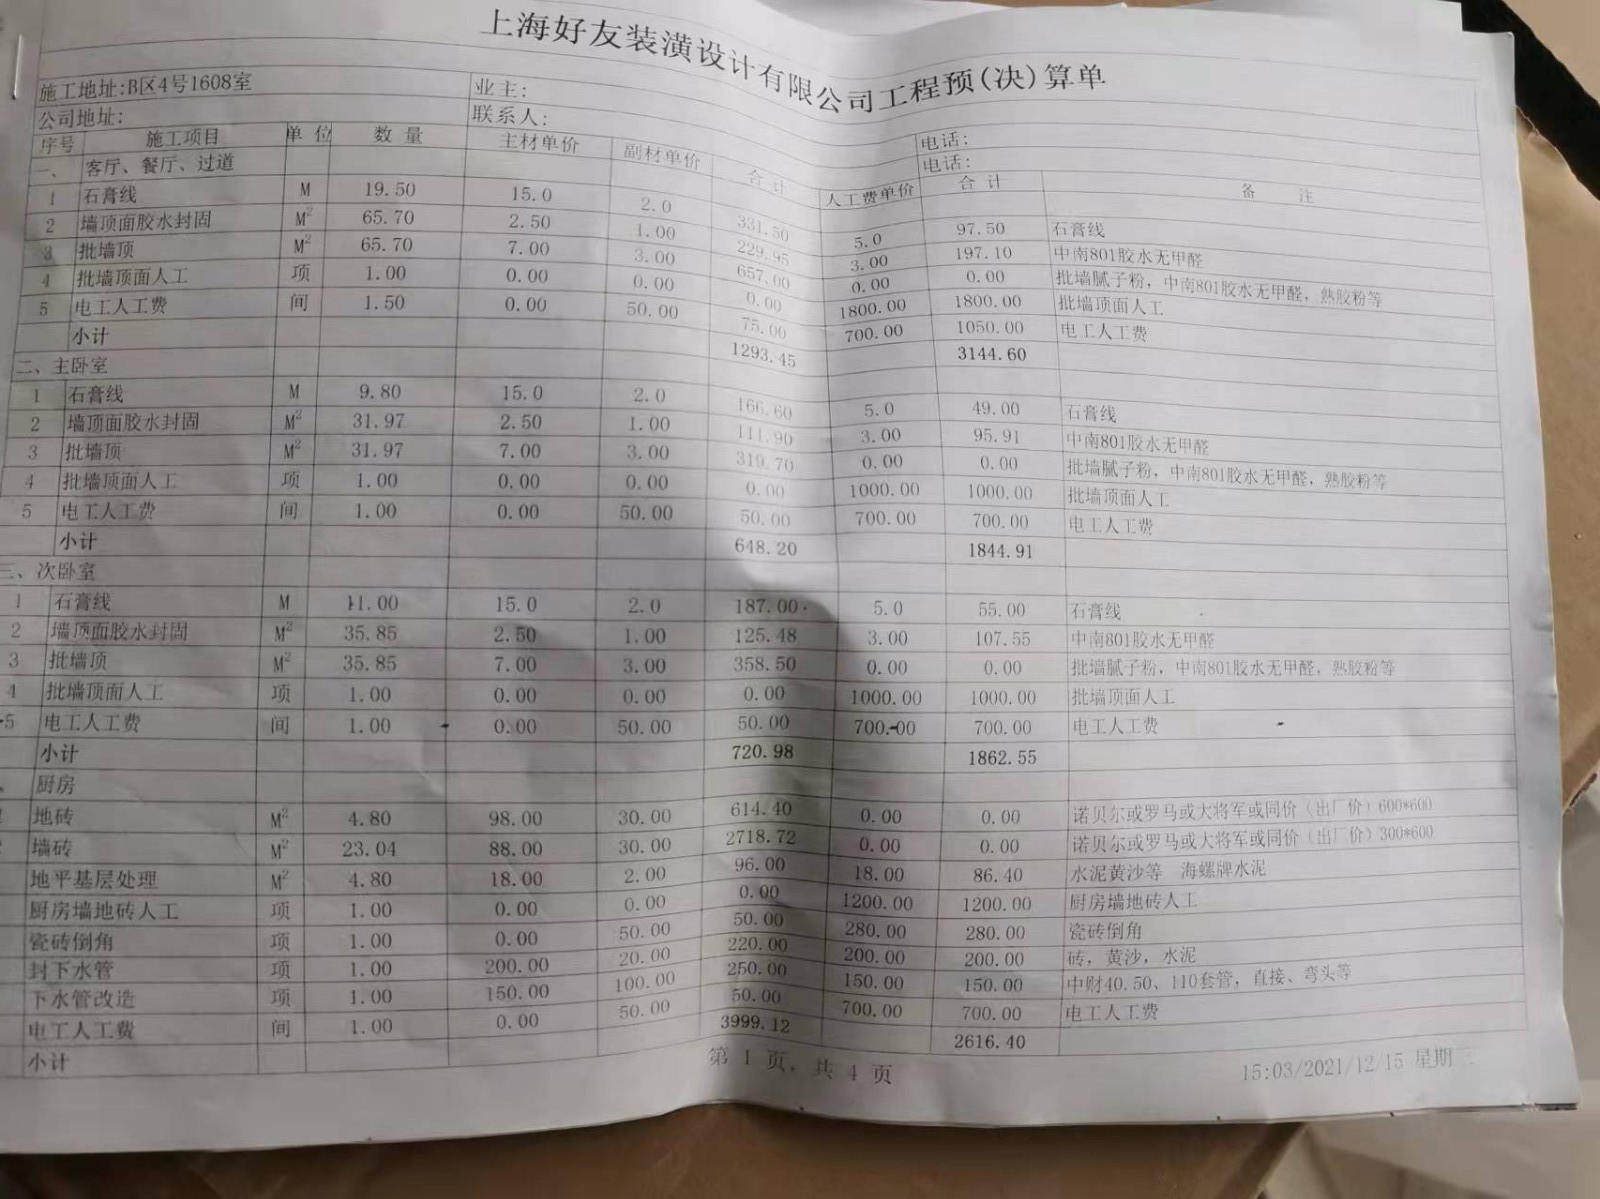 上海好友装潢设计有限公司工程预(决)算单
施工地址:B区4号1608室 业主: 电话:
公司地址: 联系人: 电话:
序号 施工项目 单位 数量 主材单价 副材单价 合计 人工费单价 合计 备注
一、 客厅、餐厅、过道
1 石膏线 M 19.50 15.0 2.0 331.50 5.0 97.50 石膏线
2 墙顶面胶水封固 M² 65.70 2.50 1.00 229.95 3.00 197.10 中南801胶水无甲醛
3 批墙顶 M² 65.70 7.00 3.00 657.00 0.00 0.00 批墙腻子粉，中南801胶水无甲醛，熟胶粉等
4 批墙顶面人工 项 1.00 0.00 0.00 0.00 1800.00 1800.00 批墙顶面人工
5 电工人工费 间 1.50 0.00 50.00 75.00 700.00 1050.00 电工人工费
小计 1293.45 3144.60
二、主卧室
1 石膏线 M 9.80 15.0 2.0 166.60 5.0 49.00 石膏线
2 墙顶面胶水封固 M² 31.97 2.50 1.00 111.90 3.00 95.91 中南801胶水无甲醛
3 批墙顶 M² 31.97 7.00 3.00 319.70 0.00 0.00 批墙腻子粉，中南801胶水无甲醛，熟胶粉等
4 批墙顶面人工 项 1.00 0.00 0.00 0.00 1000.00 1000.00 批墙顶面人工
5 电工人工费 间 1.00 0.00 50.00 50.00 700.00 700.00 电工人工费
小计 648.20 1844.91
三、次卧室
1 石膏线 M 11.00 15.0 2.0 187.00 5.0 55.00 石膏线
2 墙顶面胶水封固 M² 35.85 2.50 1.00 125.48 3.00 107.55 中南801胶水无甲醛
3 批墙顶 M² 35.85 7.00 3.00 358.50 0.00 0.00 批墙腻子粉，中南801胶水无甲醛，熟胶粉等
4 批墙顶面人工 项 1.00 0.00 0.00 0.00 1000.00 1000.00 批墙顶面人工
5 电工人工费 间 1.00 0.00 50.00 50.00 700.00 700.00 电工人工费
小计 720.98 1862.55
厨房
地砖 M² 4.80 98.00 30.00 614.40 0.00 0.00 诺贝尔或罗马或大将军或同价（出厂价）600*600
墙砖 M² 23.04 88.00 30.00 2718.72 0.00 0.00 诺贝尔或罗马或大将军或同价（出厂价）300*600
地平基层处理 M² 4.80 18.00 2.00 96.00 18.00 86.40 水泥黄沙等 海螺牌水泥
厨房墙地砖人工 项 1.00 0.00 0.00 0.00 1200.00 1200.00 厨房墙地砖人工
瓷砖倒角 项 1.00 0.00 50.00 50.00 280.00 280.00 瓷砖倒角
封下水管 项 1.00 200.00 20.00 220.00 200.00 200.00 砖，黄沙，水泥
下水管改造 项 1.00 150.00 100.00 250.00 150.00 150.00 中财40.50、110套管，直接、弯头等
电工人工费 间 1.00 0.00 50.00 50.00 700.00 700.00 电工人工费
小计 3999.12 2616.40
第 1 页，共 4 页
15:03/2021/12/15 星期